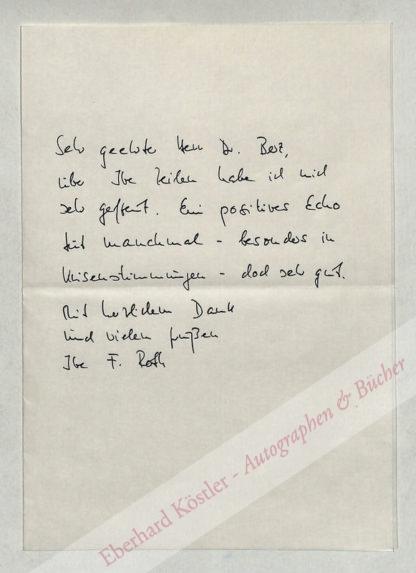 Sehr geehrter Herr Dr. Berz,
über Ihre Zeilen habe ich mich
sehr gefreut. Ein positives Echo
tut manchmal - besonders in
Krisenstimmungen - doch sehr gut.
Mit herzlichem Dank
und vielen Grüßen
Ihr F. Roth
Eberhard Köstler - Autographen & Bücher